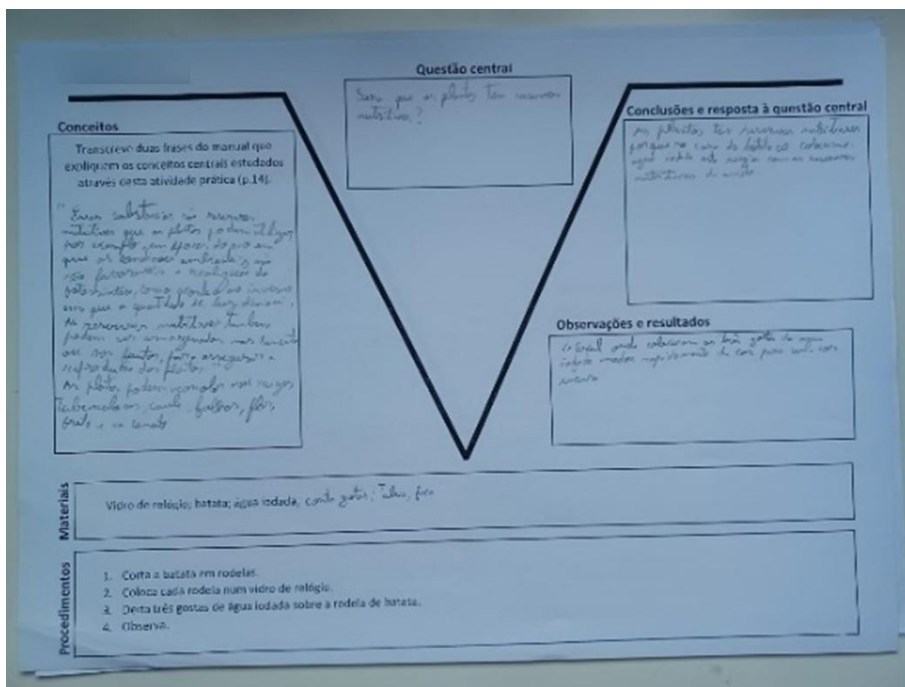 Questão central
Será que as plantas têm reservas
nutritivas?
Conceitos
Transcreve duas frases do manual que
expliquem os conceitos centrais estudados
através desta atividade prática (p.14).
" Essas substâncias são reservas
nutritivas que as plantas podem utilizar,
por exemplo, em épocas do ano em
que as condições ambientais não
são favoráveis à realização da
fotossíntese, como acontece no inverno
em que a quantidade de luz diminui.
As reservas nutritivas também
podem ser armazenadas nas sementes
ou nos frutos, para assegurar a
reprodução das plantas."
As plantas podem nas raízes
caule, folhas, flor,
fruto e na semente
Conclusões e resposta à questão central
As plantas têm reservas nutritivas
porque no caso da batata colocamos
água iodada reservas
nutritivas
Observações e resultados
O local onde colocaram as três gotas de água
iodada mudou rapidamente de cor para cor
escura
Materiais
Vidro de relógio; batata; água iodada, conta gotas; faca
Procedimentos
1. Corta a batata em rodelas.
2. Coloca cada rodela num vidro de relógio.
3. Deita três gostas de água iodada sobre a rodela de batata.
4. Observa.